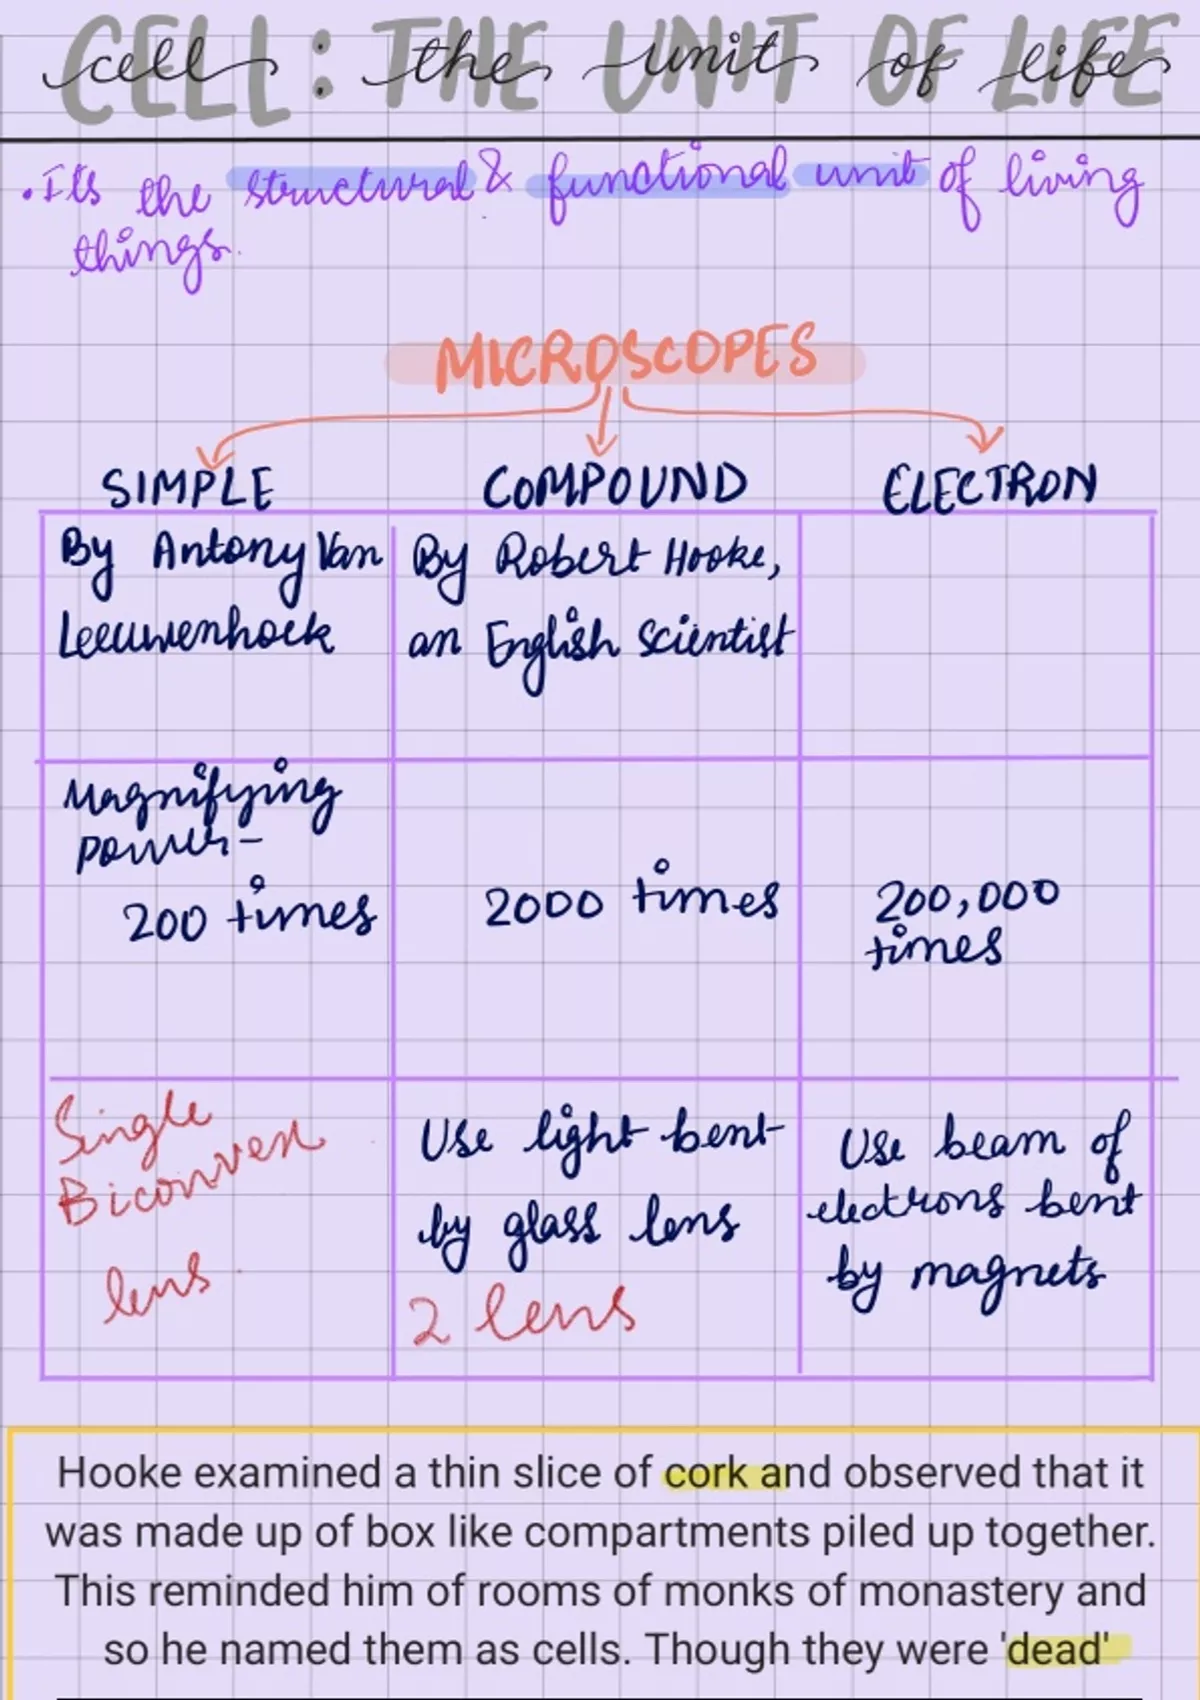 CELL : THE UNIT OF LIFE
cell : the unit of life
•Its the structural & functional unit of living
things.
MICROSCOPES
SIMPLE COMPOUND ELECTRON
By Antony Van
Leeuwenhoek
By Robert Hooke,
an English Scientist
Magnifying
power-
200 times
2000 times
200,000
times
Single
Biconvex
lens.
Use light bent
by glass lens
2 lens
Use beam of
electrons bent
by magnets
Hooke examined a thin slice of cork and observed that it
was made up of box like compartments piled up together.
This reminded him of rooms of monks of monastery and
so he named them as cells. Though they were 'dead'